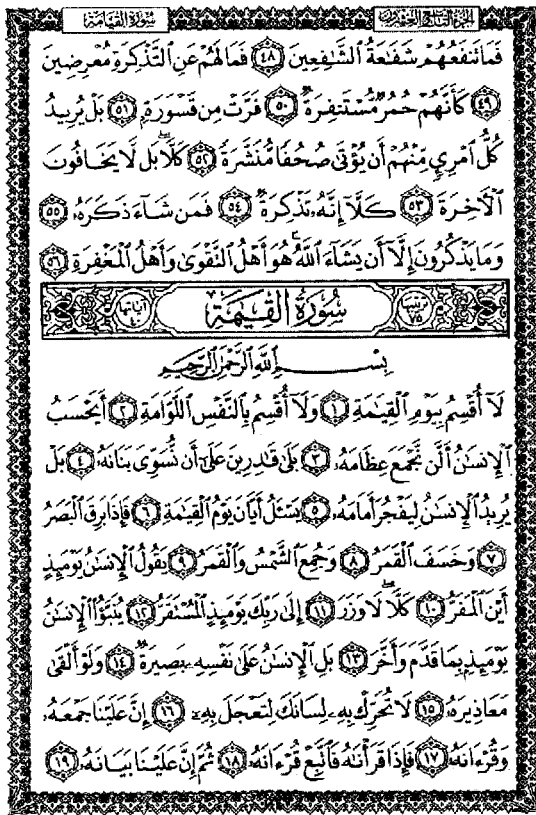 سُورَةُ القِيَامَة الجزء التاسع والعشرون
فَمَا تَنفَعُهُمْ شَفَاعَةُ الشَّافِعِينَ ٤٨ فَمَا لَهُمْ عَنِ التَّذْكِرَةِ مُعْرِضِينَ
٤٩ كَأَنَّهُمْ حُمُرٌ مُّسْتَنفِرَةٌ ٥٠ فَرَّتْ مِن قَسْوَرَةٍ ٥١ بَلْ يُرِيدُ
كُلُّ امْرِئٍ مِّنْهُمْ أَن يُؤْتَى صُحُفًا مُّنَشَّرَةً ٥٢ كَلَّا بَل لَّا يَخَافُونَ
الْآخِرَةَ ٥٣ كَلَّا إِنَّهُ تَذْكِرَةٌ ٥٤ فَمَن شَاءَ ذَكَرَهُ ٥٥
وَمَا يَذْكُرُونَ إِلَّا أَن يَشَاءَ اللَّهُ هُوَ أَهْلُ التَّقْوَى وَأَهْلُ الْمَغْفِرَةِ ٥٦
ترتيبها ٧٥ سُورَةُ القِيَامَةِ آياتها ٤٠
بِسْمِ اللَّهِ الرَّحْمَنِ الرَّحِيمِ
لَا أُقْسِمُ بِيَوْمِ الْقِيَامَةِ ١ وَلَا أُقْسِمُ بِالنَّفْسِ اللَّوَّامَةِ ٢ أَيَحْسَبُ
الْإِنسَانُ أَلَّن نَّجْمَعَ عِظَامَهُ ٣ بَلَى قَادِرِينَ عَلَى أَن نُّسَوِّيَ بَنَانَهُ ٤ بَلْ
يُرِيدُ الْإِنسَانُ لِيَفْجُرَ أَمَامَهُ ٥ يَسْـَٔلُ أَيَّانَ يَوْمُ الْقِيَامَةِ ٦ فَإِذَا بَرِقَ الْبَصَرُ
٧ وَخَسَفَ الْقَمَرُ ٨ وَجُمِعَ الشَّمْسُ وَالْقَمَرُ ٩ يَقُولُ الْإِنسَانُ يَوْمَئِذٍ
أَيْنَ الْمَفَرُّ ١٠ كَلَّا لَا وَزَرَ ١١ إِلَى رَبِّكَ يَوْمَئِذٍ الْمُسْتَقَرُّ ١٢ يُنَبَّؤُا الْإِنسَانُ
يَوْمَئِذٍ بِمَا قَدَّمَ وَأَخَّرَ ١٣ بَلِ الْإِنسَانُ عَلَى نَفْسِهِ بَصِيرَةٌ ١٤ وَلَوْ أَلْقَى
مَعَاذِيرَهُ ١٥ لَا تُحَرِّكْ بِهِ لِسَانَكَ لِتَعْجَلَ بِهِ ١٦ إِنَّ عَلَيْنَا جَمْعَهُ
وَقُرْءَانَهُ ١٧ فَإِذَا قَرَأْنَاهُ فَاتَّبِعْ قُرْءَانَهُ ١٨ ثُمَّ إِنَّ عَلَيْنَا بَيَانَهُ ١٩